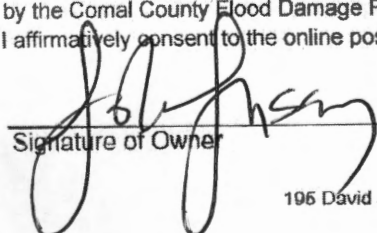 by the Comal County Flood Damage
I affirmatively consent to the online
Signature of Owner
195 David